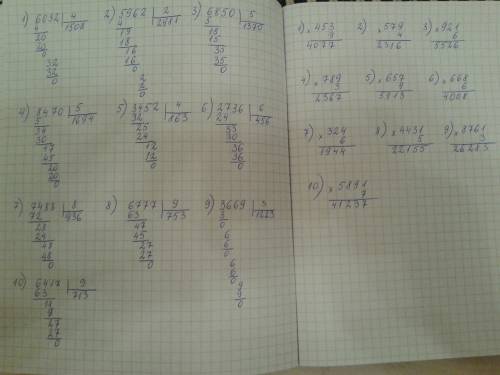 1) 6032 | 4
4 1508
20
20
32
32
0
2) 5962 | 2
4 2981
19
18
16
16
0
2
2
0
3) 6850 | 5
5 1370
18
15
35
35
0
4) 8470 | 5
5 1694
34
30
47
45
20
20
0
5) 3452 | 4
32 863
25
24
12
12
0
6) 2736 | 6
24 456
33
30
36
36
0
7) 7488 | 8
72 936
28
24
48
48
0
8) 6777 | 9
63 753
47
45
27
27
0
9) 3669 | 3
3 1223
0
6
6
0
6
6
0
9
9
0
10) 6417 | 9
63 713
11
9
27
27
0
1) × 453
9
4077
2) × 579
4
2316
3) × 921
6
5526
4) × 789
3
2367
5) × 657
9
5913
6) × 668
6
4008
7) × 324
6
1944
8) × 4431
5
22155
9) × 8761
3
26283
10) × 5891
7
41237